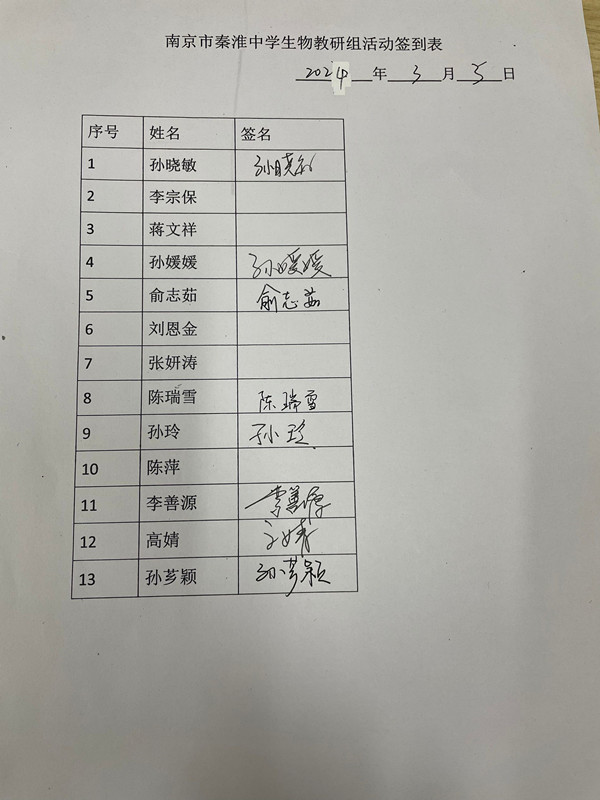 南京市秦淮中学生物教研组活动签到表
2024 年 3 月 5 日
序号 姓名 签名
1 孙晓敏 孙晓敏
2 李宗保
3 蒋文祥
4 孙媛媛 孙媛媛
5 俞志茹 俞志茹
6 刘恩金
7 张妍涛
8 陈瑞雪 陈瑞雪
9 孙玲 孙玲
10 陈萍
11 李善源 李善源
12 高婧 高婧
13 孙芗颖 孙芗颖